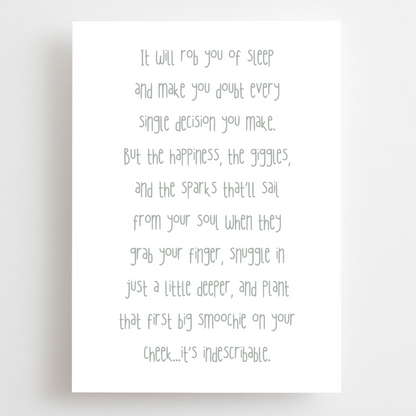 It will rob you of sleep
and make you doubt every
single decision you make.
But the happiness, the giggles,
and the sparks that'll sail
from your soul when they
grab your finger, snuggle in
just a little deeper, and plant
that first big smoochie on your
cheek...it's indescribable.